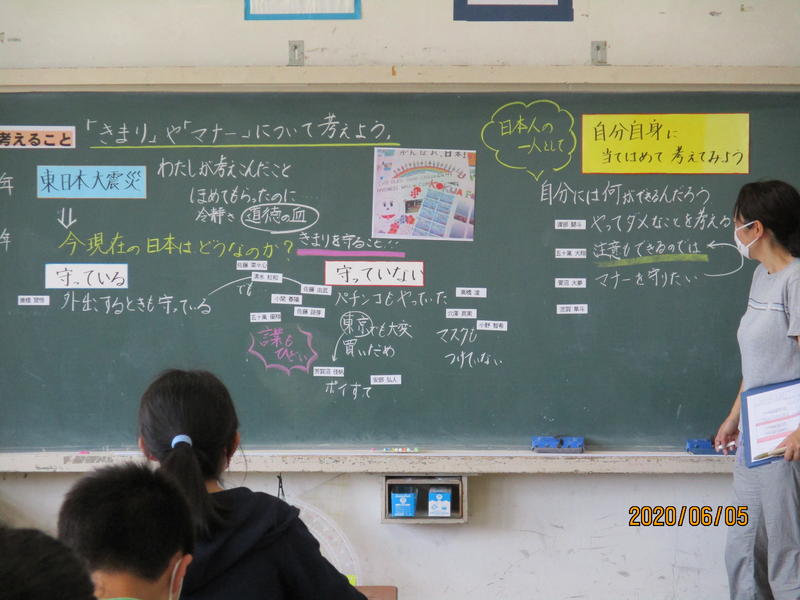 考えること
「きまり」や「マナー」について考えよう。
年
東日本大震災
わたしが考えこんだこと
ほめてもらったのに…
冷静さ 道徳の血
年
今現在の日本はどうなのか?
きまりを守ること…
守っている
外出するときも守っている
でも
守っていない
パチンコもやっていた
東京でも大変
買いだめ
ポイすて
言葉も
ひどい
マスクも
つけていない
日本人の
一人として
自分自身に
当てはめて 考えてみよう
自分には何ができるんだろう
やってダメなことを考える
注意もできるのでは
マナーを守りたい
2020/06/05